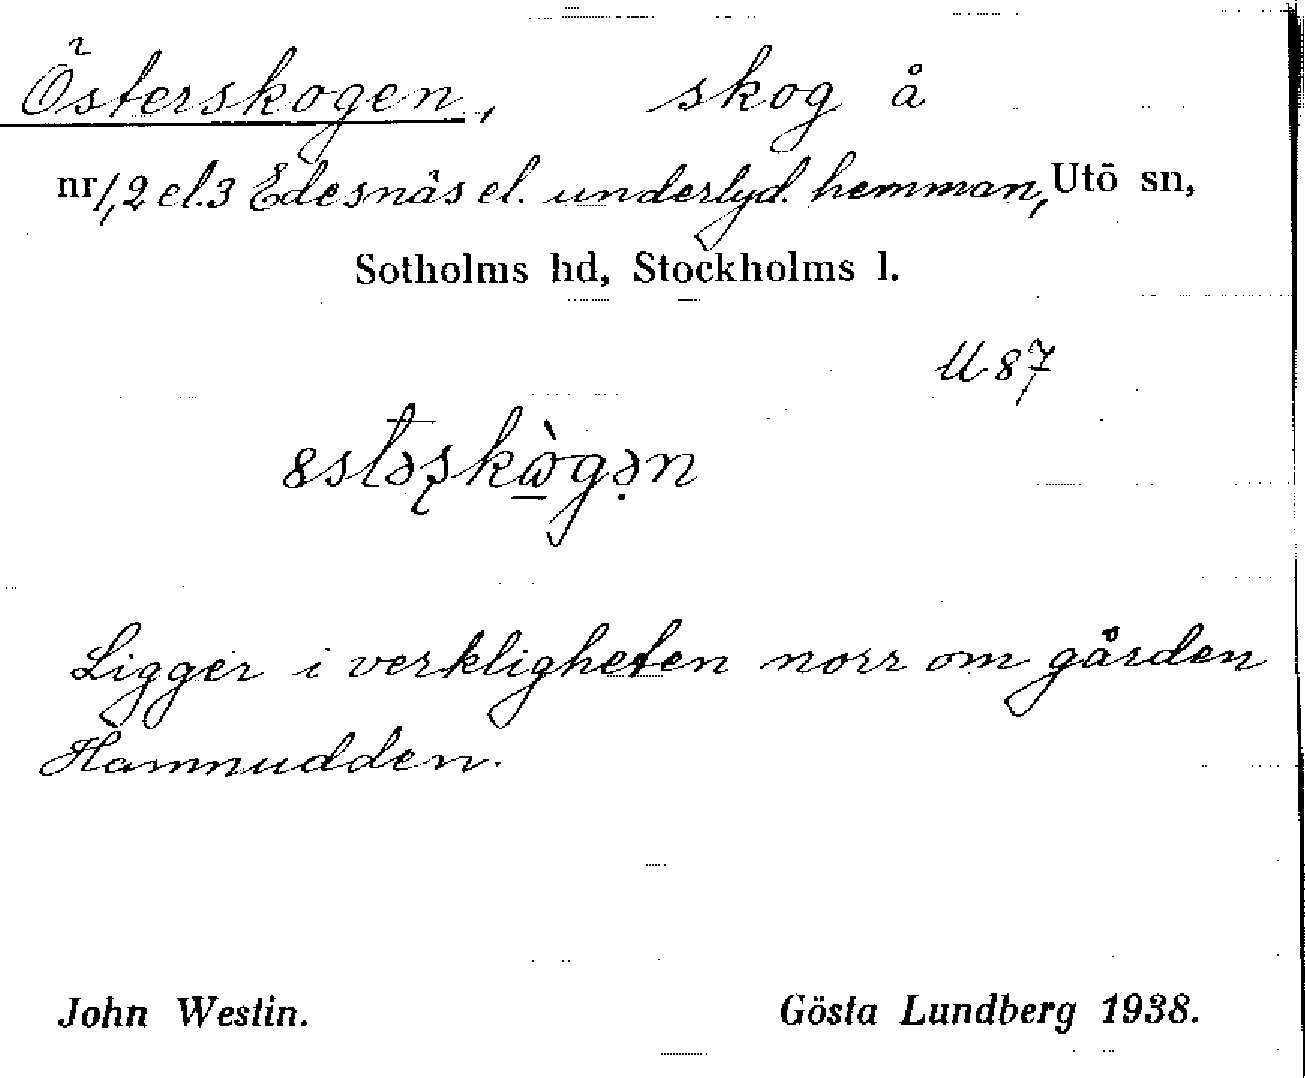 Österskogen, skog å
nr 1, 2 el. 3 Edesnäs el. underlyd. hemman, Utö sn,
Sotholms hd, Stockholms l.
U 87
Ligger i verkligheten norr om gården
Hamnudden.
John Westin. Gösta Lundberg 1938.